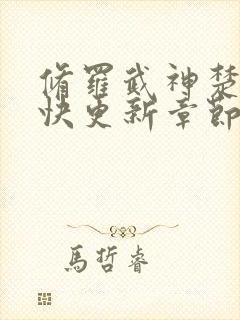 脩羅武神楚
快更新章節
馬哲睿